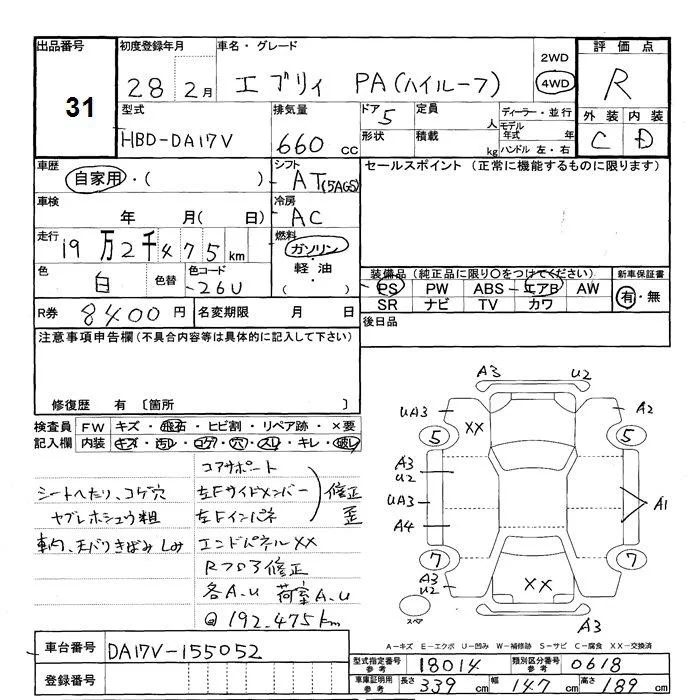 出品番号 31
初度登録年月 28 2月
車名・グレード エブリィ PA(ハイルーフ)
2WD 4WD
評価点 R
外装 内装
C D
型式 HBD-DA17V
排気量 660 cc
ドア 5 形状
定員 人 積載 kg
ディーラー・並行
モデル年式 年
ハンドル 左・右
車歴 自家用・( )
シフト AT(5AGS)
セールスポイント (正常に機能するものに限ります)
車検 年 月( 日)
冷房 AC
走行 19万2千475km
燃料 ガソリン・軽油・( )
色 白 色替 色コード 26U
装備品 (純正品に限り○をつけてください)
PS PW ABS エアB AW
SR ナビ TV カワ
新車保証書 有・無
R券 8400円 名変期限 月 日
後日品
注意事項申告欄(不具合内容等は具体的に記入して下さい)
修復歴 有 〔箇所 〕
検査員記入欄
FW キズ・飛石・ヒビ割・リペア跡・×要
内装 キズ・汚レ・コゲ・穴・スレ・キレ・破レ
シートへたり、コゲ穴
ヤブレホシュウ粗
車内、天バリきばみ しみ
コアサポート
左Fサイドメンバー
左Fインパネ
修正 歪
エンドパネルXX
Rフロア修正
各A.U 荷室A.U
@192.475km
A3 U2
UA3 XX A2
5 5
A3 U2
UA3 A1
A4
7 7
A3 U2 XX
スペア
A3
A-キズ E-エクボ U-凹み W-補修跡 S-サビ C-腐食 XX-交換済
車台番号 DA17V-155052
登録番号
型式指定番号 参考 18014 類別区分番号 参考 0618
車庫証明用 参考 長さ 339 cm 幅 147 cm 高さ 189 cm